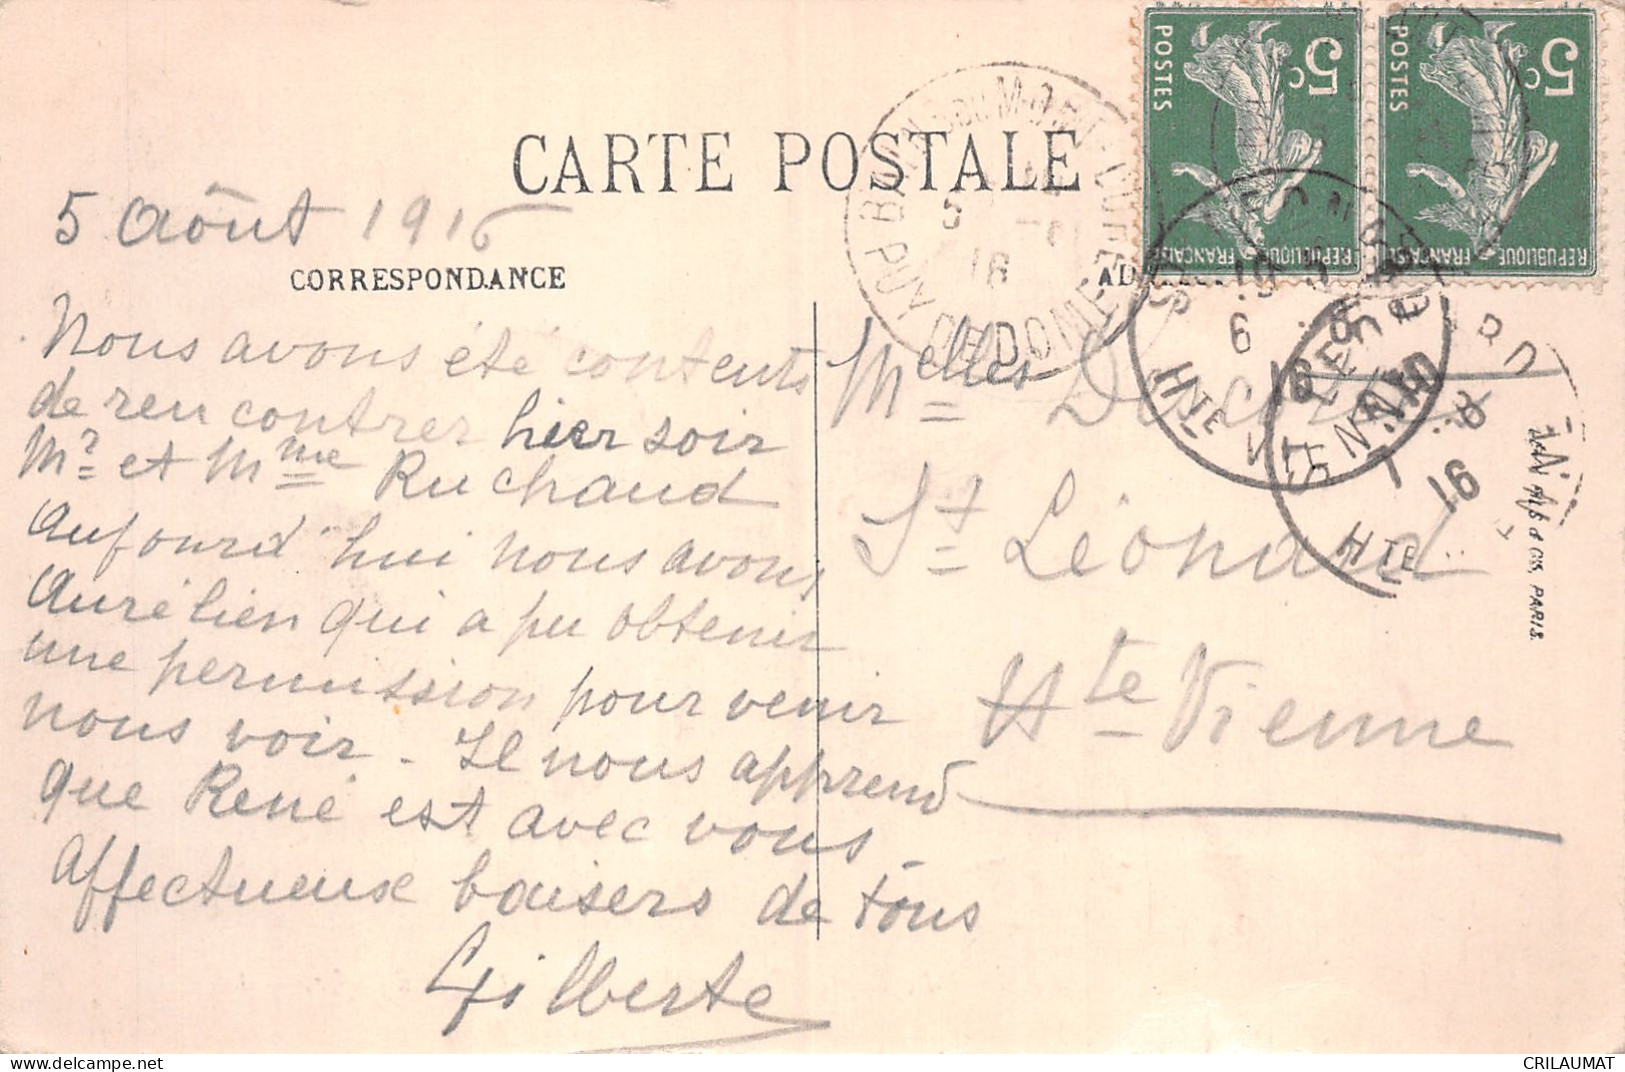 CARTE POSTALE
5 Août 1916
CORRESPONDANCE
Nous avons été contents
de rencontrer hier soir
Mr et Mme Ruchaud
Aujourd'hui nous avons
Aurélien qui a pu obtenir
une permission pour venir
nous voir - Il nous apprend
que René est avec vous -
Affectueux baisers de tous
Gilberte
Melles
St Léonard
Hte Vienne
5c
POSTES
REPUBLIQUE FRANÇAISE
5c
POSTES
REPUBLIQUE FRANÇAISE
PUY DE DOME
5
16
6
16
HTE VIENNE
16
HTE
PARIS.
CRILAUMAT